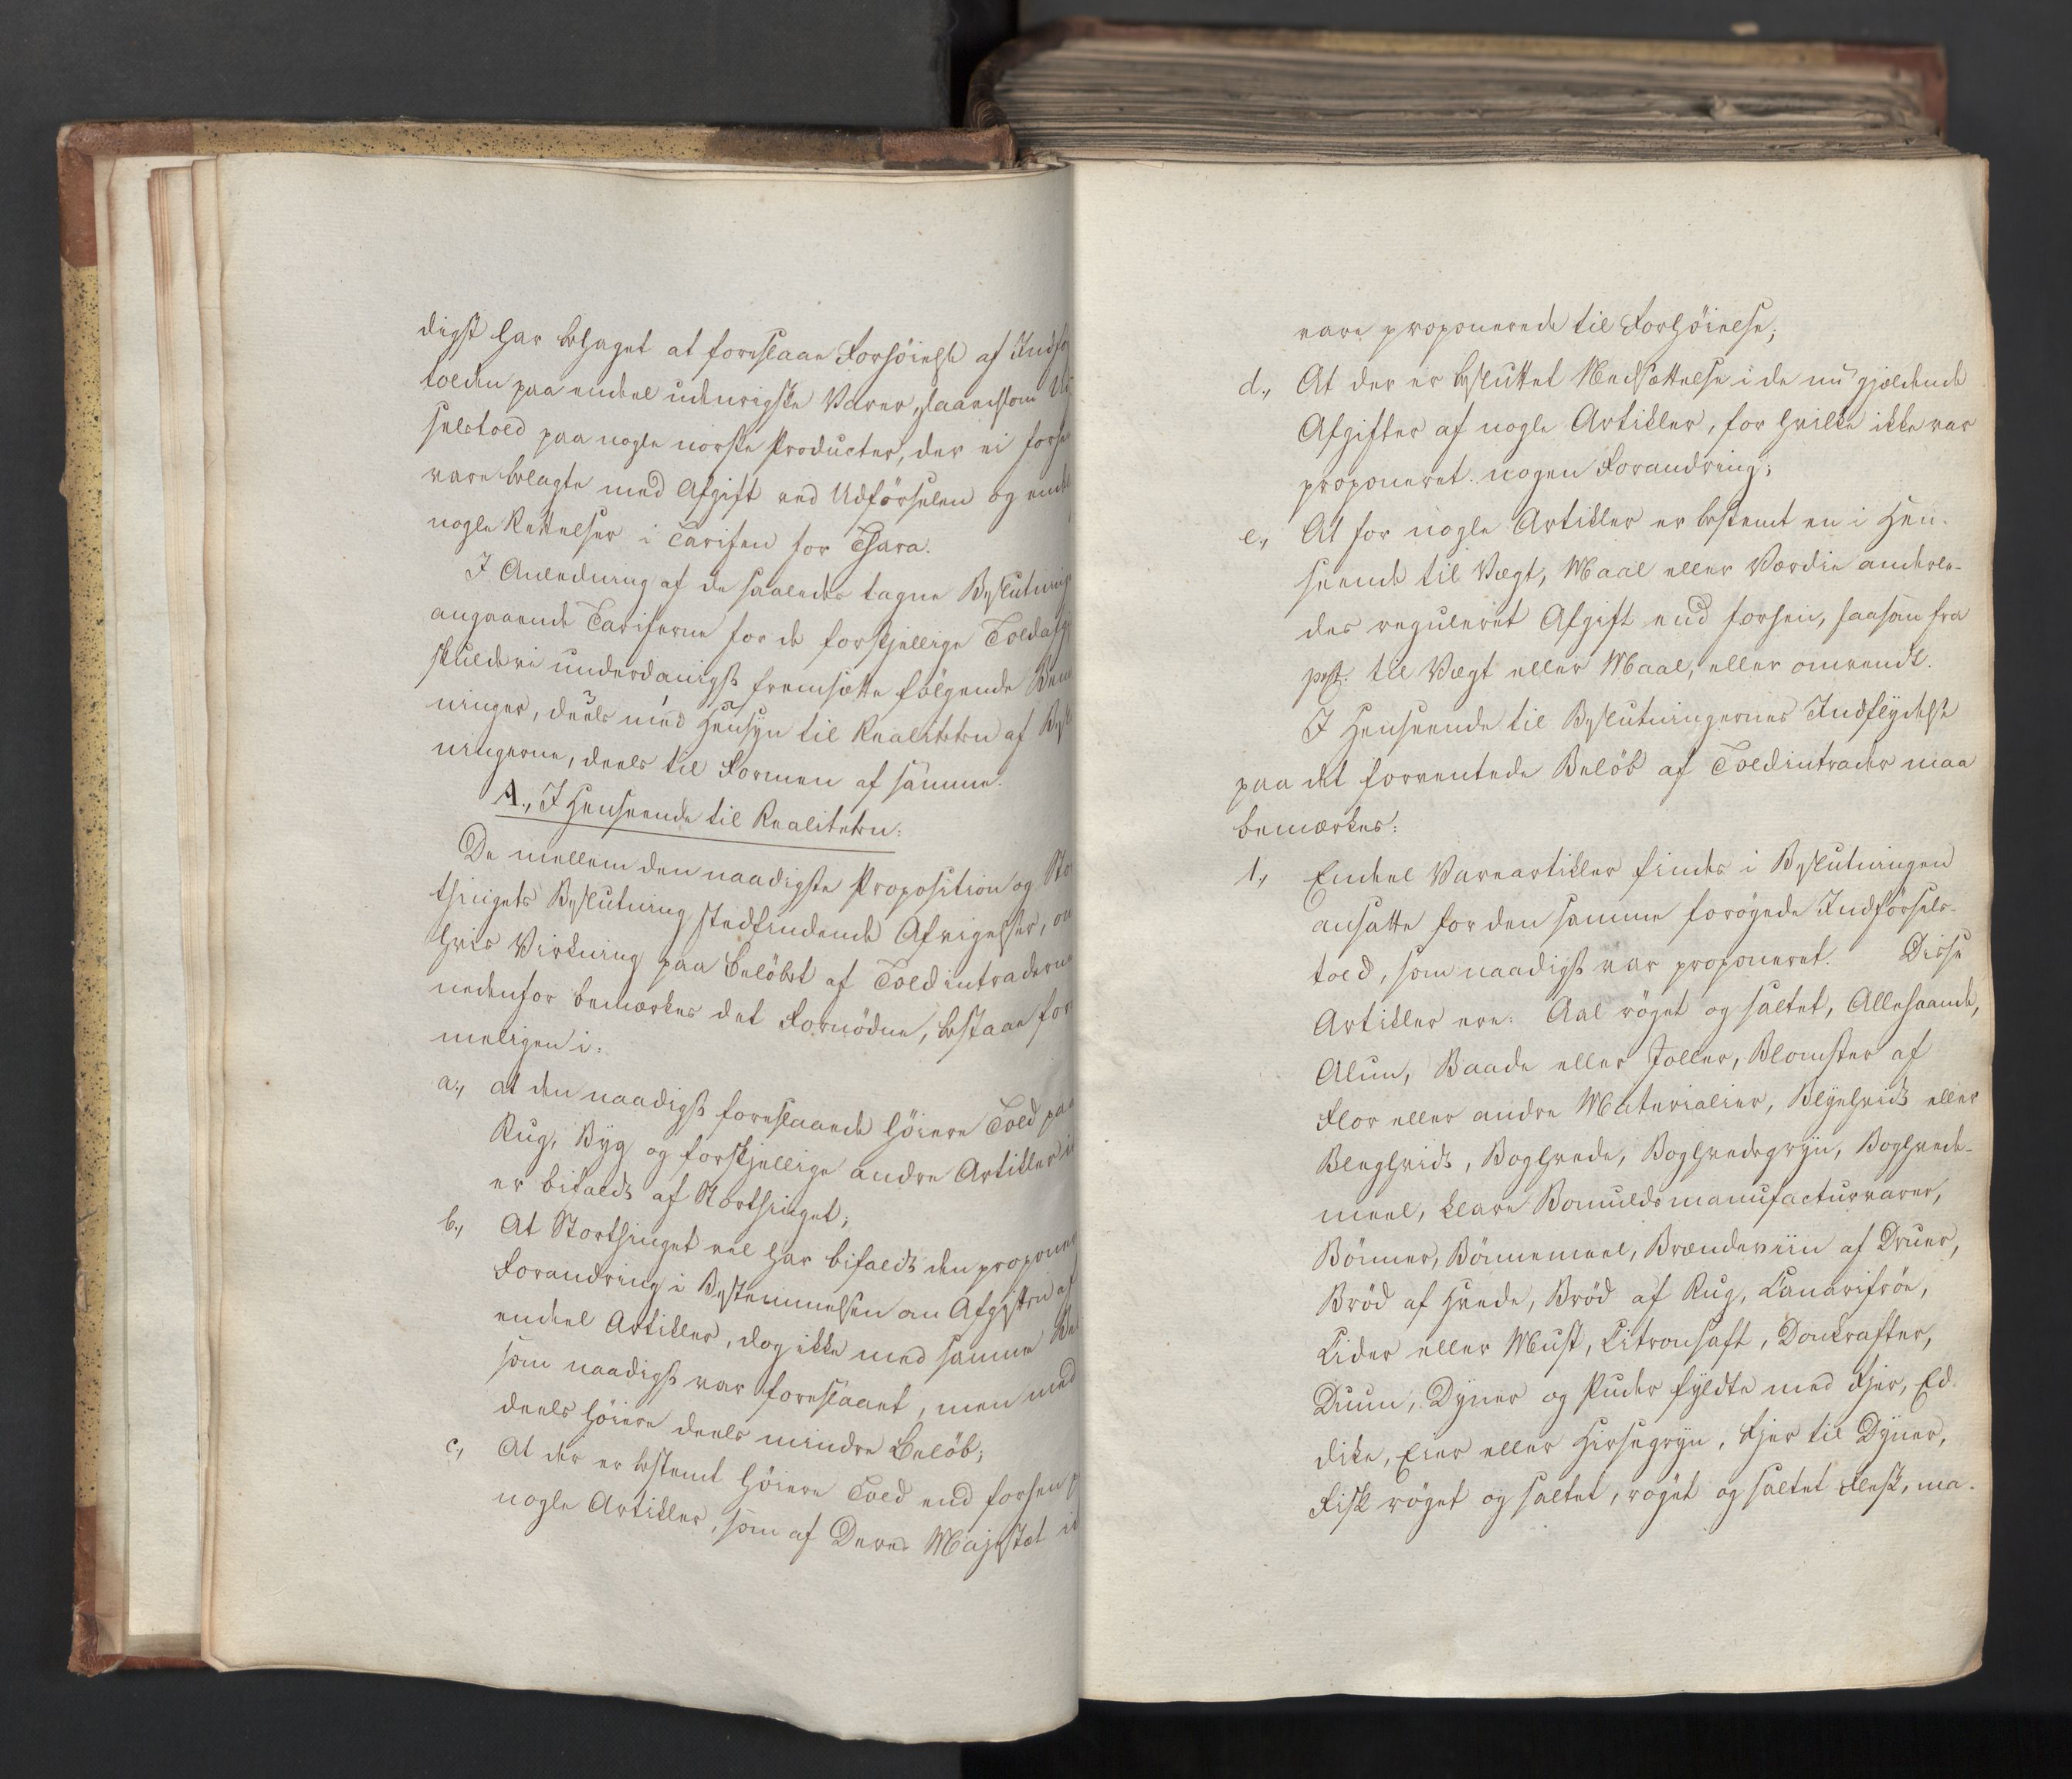 digst har behaget at foreslaae Forhöielse af Indfør
tolden paa endeel udenrigske Varer, saavelsom Ud
selstold paa nogle norske Producter, der ei forhen
vare belagte med Afgift ved Udförselen og endeel
nogle Rettelser i Tarifen for Thara.
I Anledning af de saaledes tagne Beslutning
angaaende Tariferne for de forskjellige Toldafgi
skulde vi underdanigst fremsætte fölgende Bem
ninger, deels med Hensyn til Realiteten af Besl
ningerne, deels til Formen af samme.
A., I Henseende til Realiteten:
De mellem den naadigste Proposition og Stor
thingets Beslutning stedfindende Afvigelser, om
hvis Virkning paa Belöbet af Toldintraderne
nedenfor bemærkes det Fornödne, bestaae for
meligen i:
a., at den naadigst foreslaaede höiere Told paa
Rug, Byg og forskjellige andre Artikler
er bifaldt af Storthinget;
b., At Storthinget vel har bifaldt den propone
Forandring i Bestemmelsen om Afgiften af
endeel Artikler, dog ikke med samme Be
som naadigst var foreslaaet, men med
deels höiere deels mindre Belöb;
c., At der er bestemt höiere Told end forhen p
nogle Artikler, som af Deres Majestæt
vare proponerede til Forhöielse;
d., At der er besluttet Nedsættelse i de nu gjældende
Afgifter af nogle Artikler, for hvilke ikke var
proponeret nogen Forandring;
e., At for nogle Artikler er bestemt en i Hen-
seende til Vægt, Maal eller Værdie anderle-
des reguleret Afgift end forhen, saasom fra
pCt. til Vægt eller Maal, eller omvendt.
I Henseende til Beslutningernes Indflydelse
paa det forventede Belöb af Toldintrader maa
bemærkes:
1., Endeel Vareartikler findes i Beslutningen
ansatte for den samme forögede Indförsels-
told, som naadigst var proponeret. Disse
Artikler ere: Aal röget og saltet, Allehaande,
Alun, Baade eller Joller, Blomster af
Flor eller andre Materialier, Blyehvidt eller
Bleghvidt, Boghvede, Boghvedegryn, Boghvede-
meel, klare Bomuldsmanufacturvarer,
Bönner, Bönnemeel, Brændeviin af Druer,
Bröd af Hvede, Bröd af Rug, Canarifröe,
Cider eller Must, Citronsaft, Donkrafter,
Duun, Dyner og Puder fyldte med Fjer, Ed-
dike, Eier eller Hirsegryn, Fjer til Dyner,
Fisk röget og saltet, röget og saltet Flesk, ma-